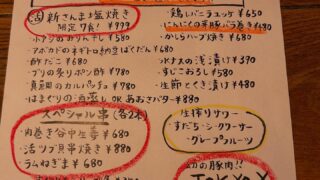 新さんま塩焼き
限定7食！ ¥999
・小アジのみりん干し ¥580
・アボカドのネギトロ納豆ばくだん ¥680
・酢だこ ¥680
・ブリの炙りポン酢 ¥780
・真鯛のカルパッチョ ¥780
・はまぐりの酒蒸し OK あおさバター ¥880
スペシャル串(各2本)
・肉巻き谷中生姜 ¥680
・活ツブ貝串焼き ¥880
・ラムねぎま ¥680
・鶏レバニラユッケ ¥650
・にんにくの芽豚バラ巻き ¥480
・かしらハーブ焼き ¥680
・水ナスの浅漬け ¥350
・すじこおろし ¥580
・生節とくき漬け ¥480
生搾りサワー
・すだち・シークワーサー
・グレープフルーツ
幻の豚肉!!
TOKYO X